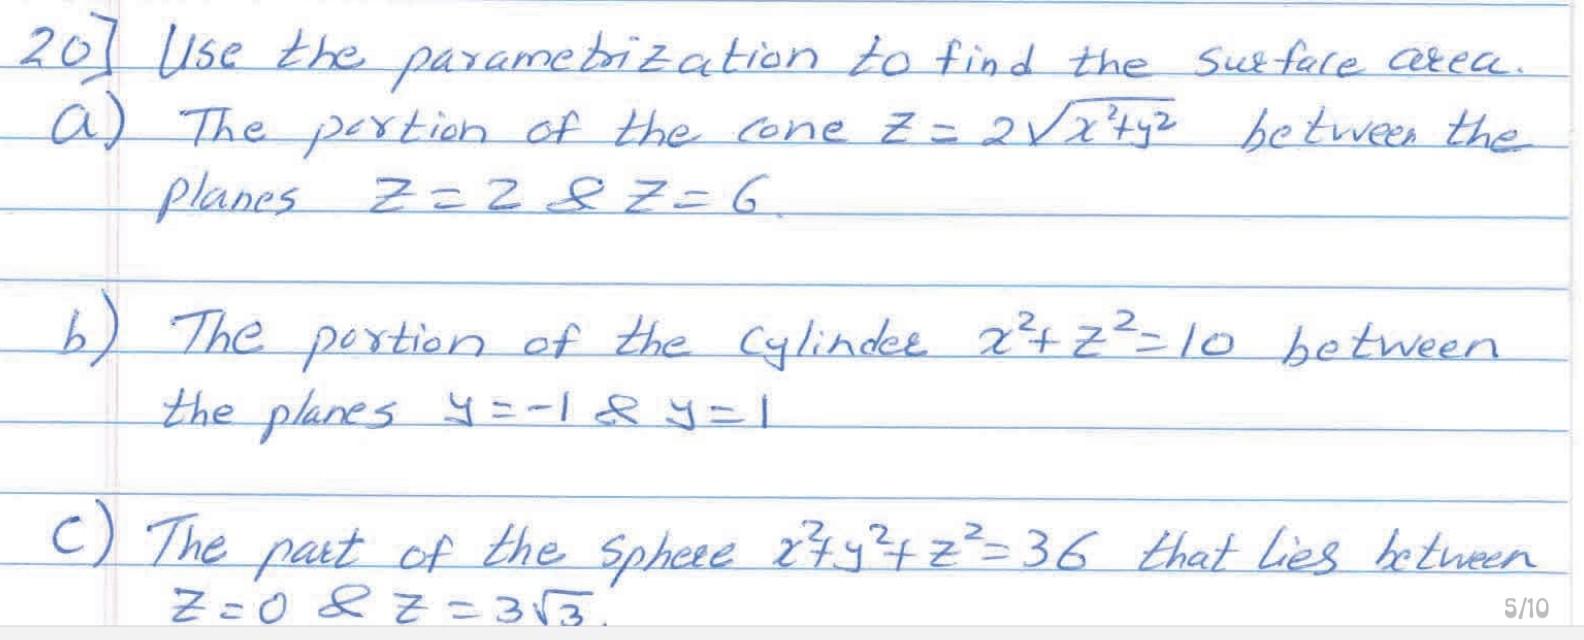 20] Use the parametrization to find the surface area.
a) The portion of the cone z = 2√x²+y² between the
planes z = 2 & z = 6.
b) The portion of the cylinder x²+z²=10 between
the planes y = -1 & y = 1
c) The part of the sphere x²+y²+z²=36 that lies between
z=0 & z = 3√3.
5/10